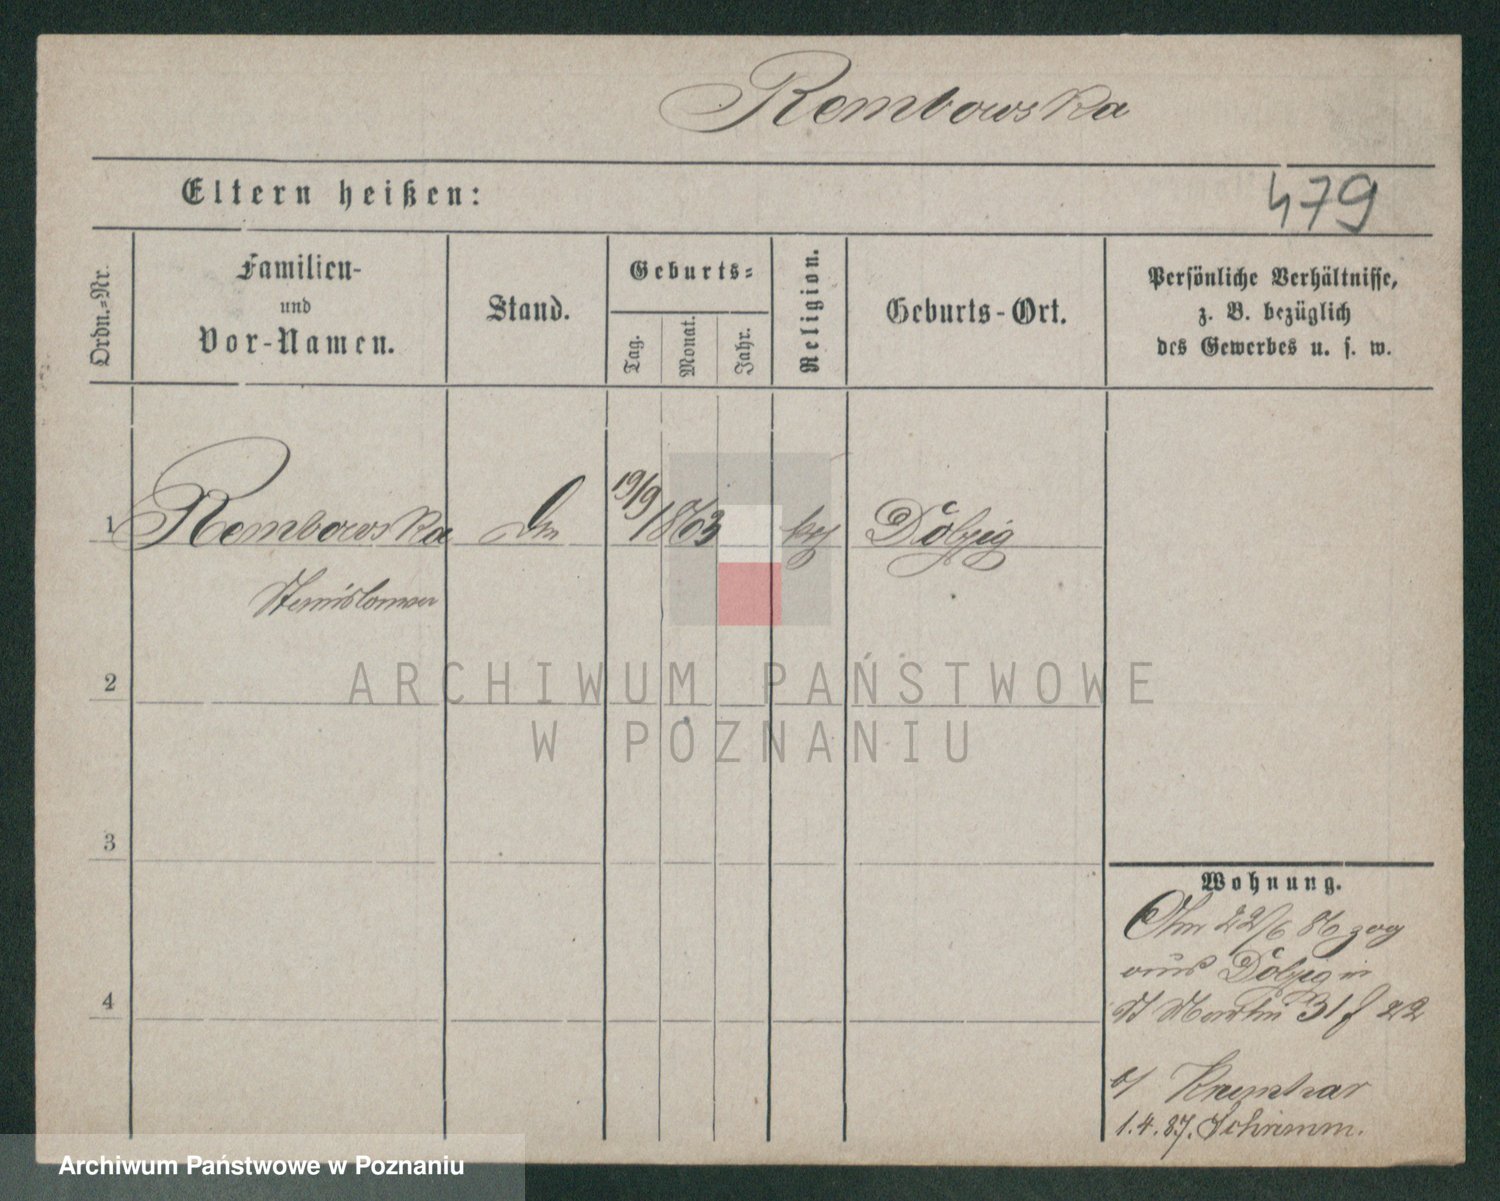 Rembowska
Eltern heißen:
479
Ordn.-Nr.
Familien-
und
Vor-Namen.
Stand.
Geburts-
Tag.
Monat.
Jahr.
Religion.
Geburts-Ort.
Persönliche Verhältnisse,
z. B. bezüglich
des Gewerbes u. s. w.
1 Rembowska 19/9 1863 Dolzig
Stanislawa
2
ARCHIWUM PAŃSTWOWE
W POZNANIU
3
4
Wohnung.
22/6 86 zog
aus Dolzig in
St Martin 31 f 22
b/
1.4.87. Schrimm.
Archiwum Państwowe w Poznaniu